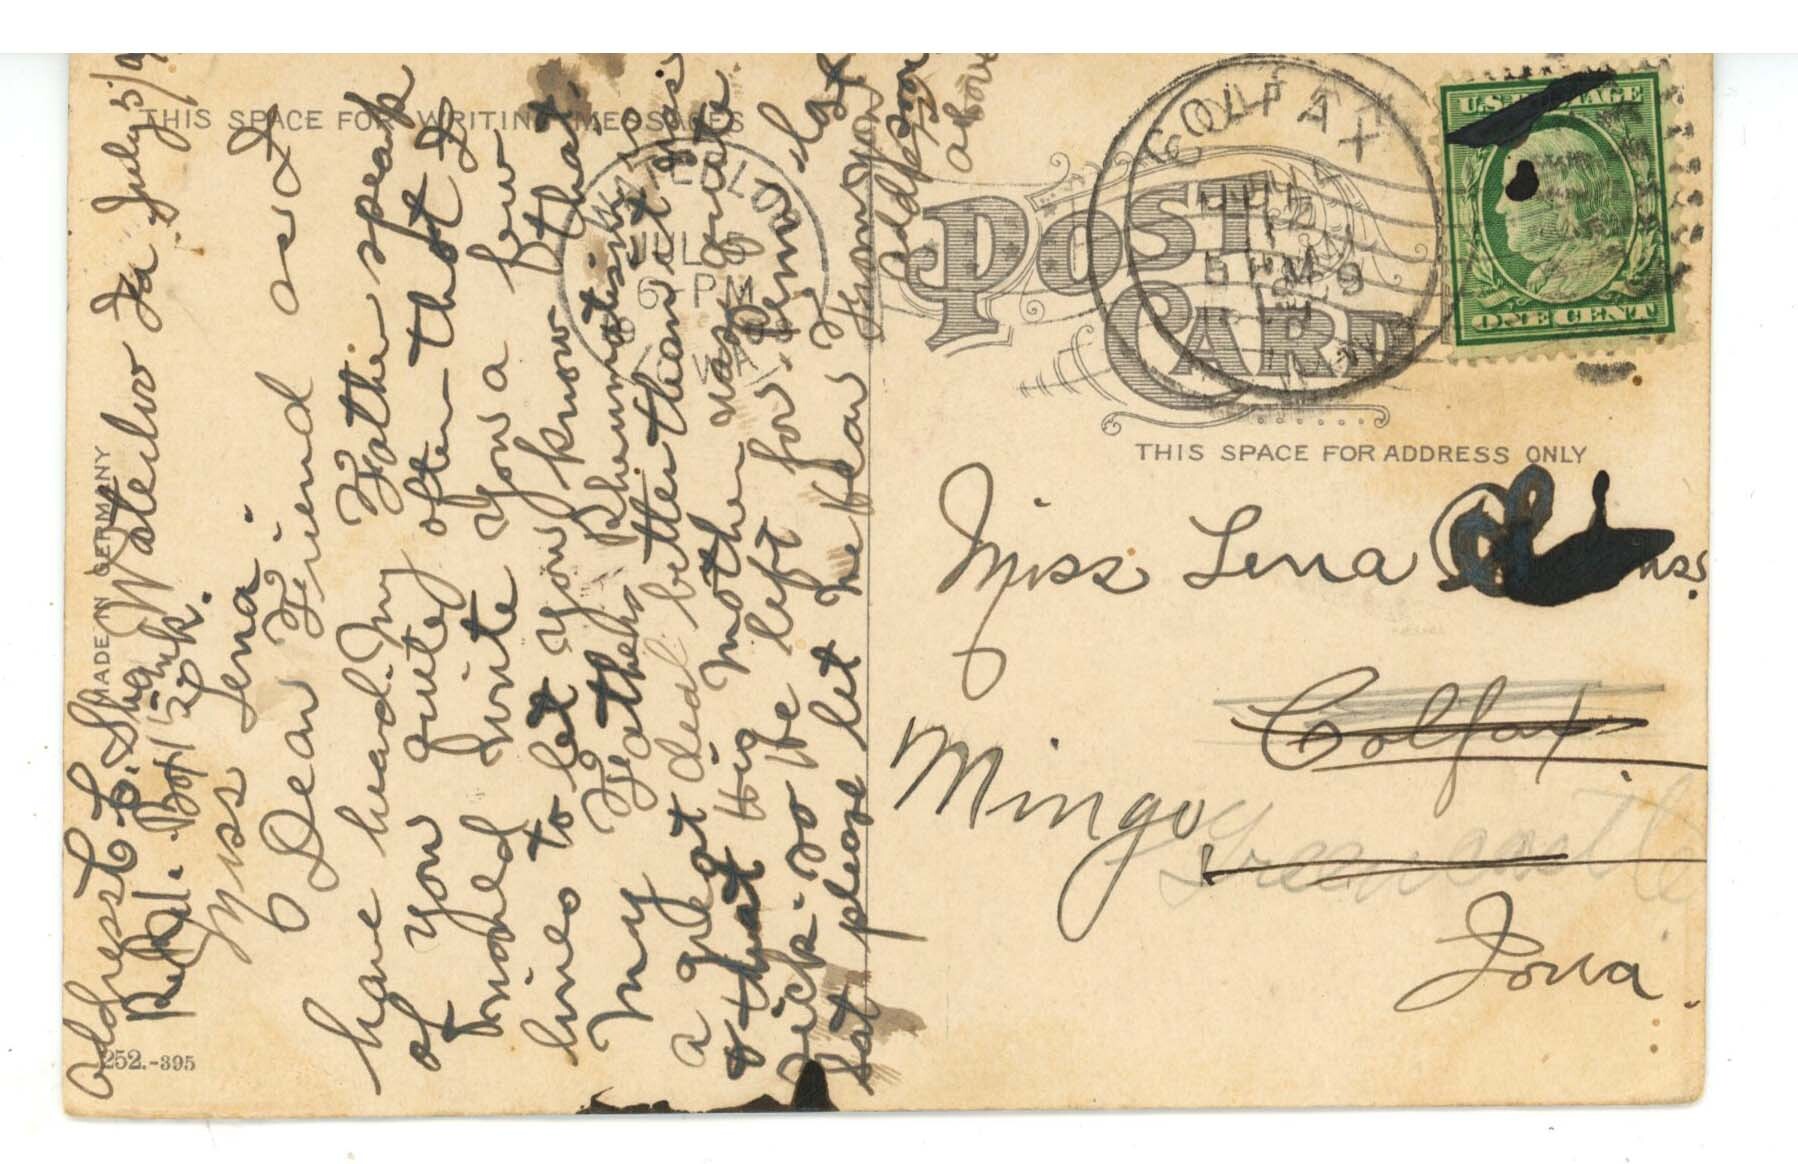 THIS SPACE FOR WRITING MESSAGES
MADE IN GERMANY
252.-395
Waterloo Ia July 5/9
Address C. E. Shank.
R.R. 1. Box 120
Miss Lena.
Dear Friend as I
have heard My Father speak
of you quite often I thot I
would write you a few
lines to let you know that
My Father's Rheumatism is
a great deal better than it was
& that His Mother was quite
sick. so He left for Penna last
Sat please let me hear from you
address
above
WATERLOO
JUL 5
6-PM
IOWA
COLFAX
JUL
5 PM
9
IOWA
U.S. POSTAGE
ONE CENT
POST CARD
THIS SPACE FOR ADDRESS ONLY
Miss Lena
Colfax
Mingo
Greencastle
Iowa.